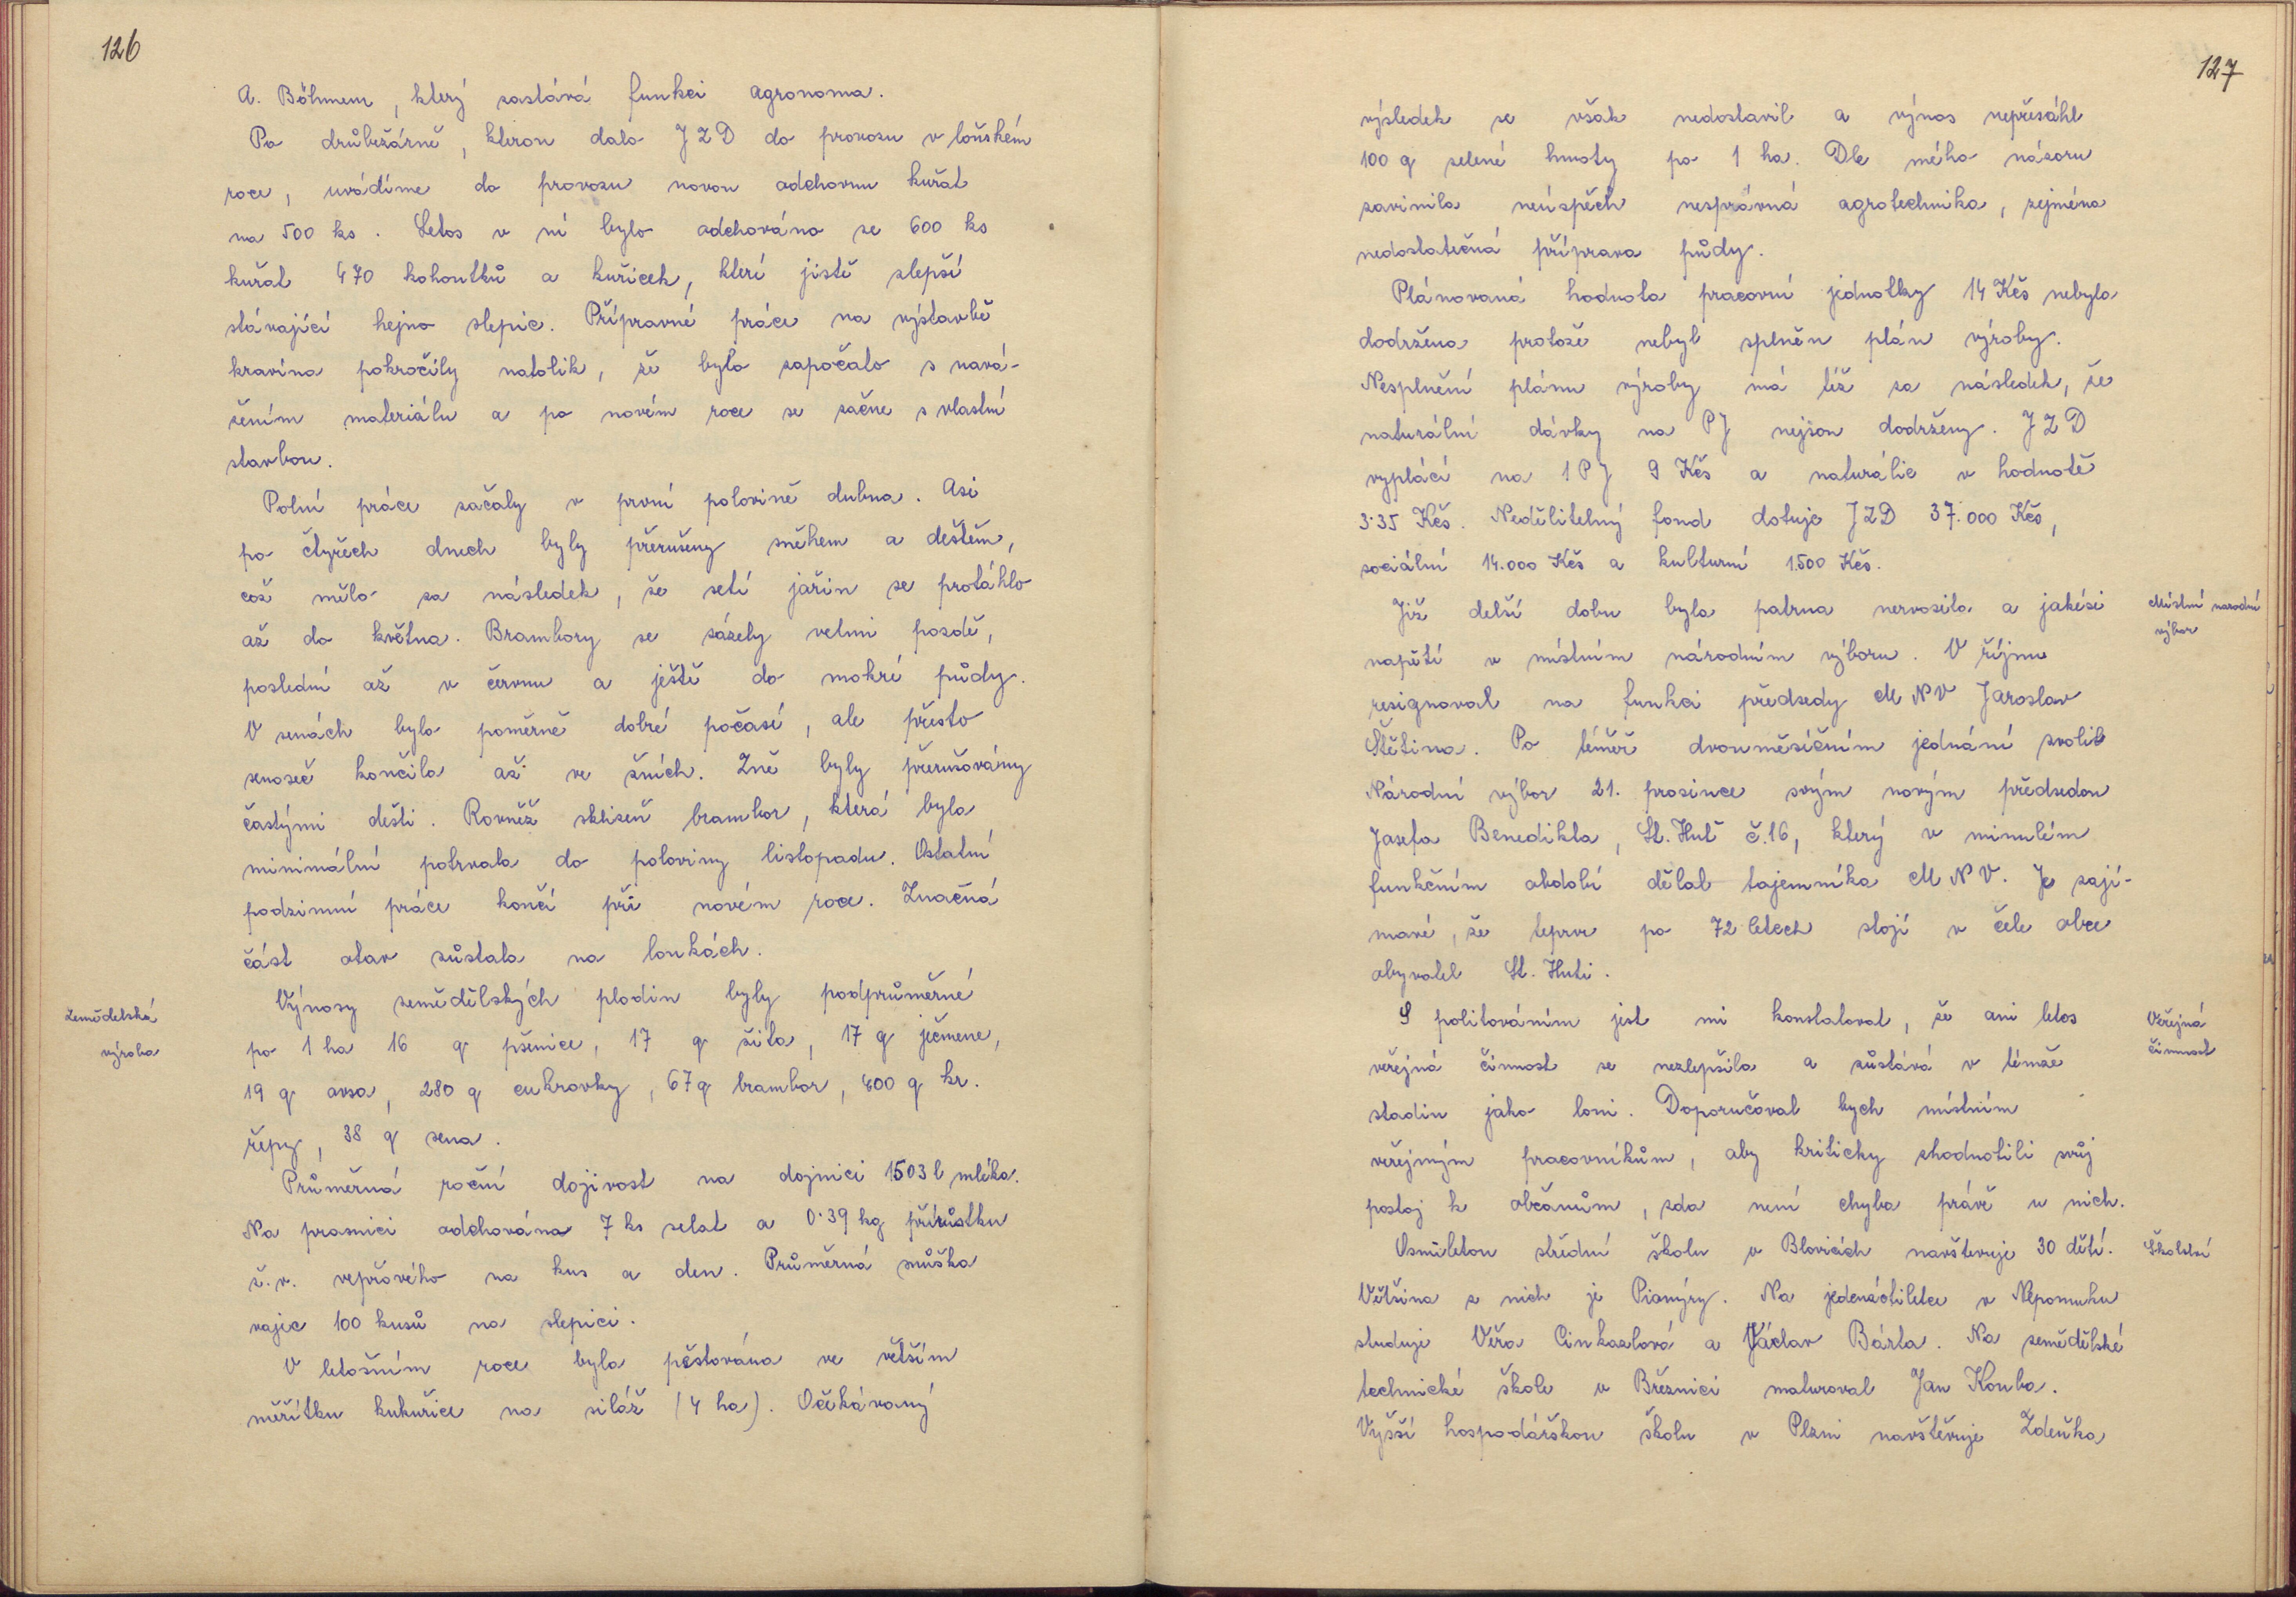 126
A. Böhmem, který zastává funkci agronoma.
Po drůbežárně, kterou dalo JZD do provozu v loňském
roce, uvádíme do provozu novou odchovnu kuřat
na 500 ks. Letos v ní bylo odchováno ze 600 ks
kuřat 470 kohoutků a kuřicek, které jistě zlepší
stávající hejno slepic. Přípravné práce na výstavbě
kravína pokročily natolik, že bylo započato s navá-
žením materiálu a po novém roce se začne s vlastní
stavbou.
Polní práce začaly v první polovině dubna. Asi
po čtyřech dnech byly přerušeny sněhem a deštěm,
což mělo za následek, že setí jařin se protáhlo
až do května. Brambory se sázely velmi pozdě,
poslední až v červnu a ještě do mokré půdy.
V senách bylo poměrně dobré počasí, ale přesto
senoseč končila až ve žních. Žně byly přerušovány
častými dešti. Rovněž sklizeň brambor, která byla
minimální potrvala do poloviny listopadu. Ostatní
podzimní práce končí při novém roce. Značná
část otav zůstala na loukách.
Zemědelská
výroba
Výnosy zemědělských plodin byly podprůměrné
po 1 ha 16 q pšenice, 17 q žita, 17 q ječmene,
19 q ovsa, 280 q cukrovky, 67 q brambor, 400 q kr.
řepy, 38 q sena.
Průměrná roční dojivost na dojnici 1503 l mléka.
Na prasnici odchována 7 ks selat a 0·39 kg přírůstku
ž.v. vepřového na kus a den. Průměrná snůška
vajec 100 kusů na slepici.
V letošním roce byla pěstována ve větším
měřítku kukuřice na siláž (4 ha). Očekávaný
127
výsledek se však nedostavil a výnos nepřesáhl
100 q zelené hmoty po 1 ha. Dle mého názoru
zavinila neúspěch nesprávná agrotechnika, zejména
nedostatečná příprava půdy.
Plánovaná hodnota pracovní jednotky 14 Kčs nebyla
dodržena protože nebyl splněn plán výroby.
Nesplnění plánu výroby má též za následek, že
naturální dávky na PJ nejsou dodrženy. JZD
vyplácí na 1 PJ 9 Kčs a naturálie v hodnotě
3·35 Kčs. Nedělitelný fond dotuje JZD 37.000 Kčs,
sociální 14.000 Kčs a kulturní 1.500 Kčs.
Místní narodní
výbor
Již delší dobu byla patrna nervosita a jakési
napětí v místním národním výboru. V říjnu
resignoval na funkci předsedy MNV Jaroslav
Štětina. Po téměř dvouměsíčním jednání zvolil
Národní výbor 21. prosince svým novým předsedou
Josefa Benedikta, St. Huť č.16, který v minulém
funkčním období dělal tajemníka MNV. Je zají-
mavé, že teprve po 72 letech stojí v čele obce
obyvatel St. Huti.
Veřejná
činnost
S politováním jest mi konstatovat, že ani letos
veřejná činnost se nezlepšila a zůstává v témže
stadiu jako loni. Doporučoval bych místním
veřejným pracovníkům, aby kriticky zhodnotili svůj
postoj k občanům, zda není chyba právě u nich.
Školství
Osmiletou střední školu v Blovicích navštevuje 30 dětí.
Většina z nich je Pionýry. Na jedenáctiletce v Nepomuku
studuje Věra Cinkaslová a Václav Bárta. Na zemědělské
technické škole v Březnici maturoval Jan Kouba.
Vyšší hospodářskou školu v Plzni navštěvuje Zdeňka